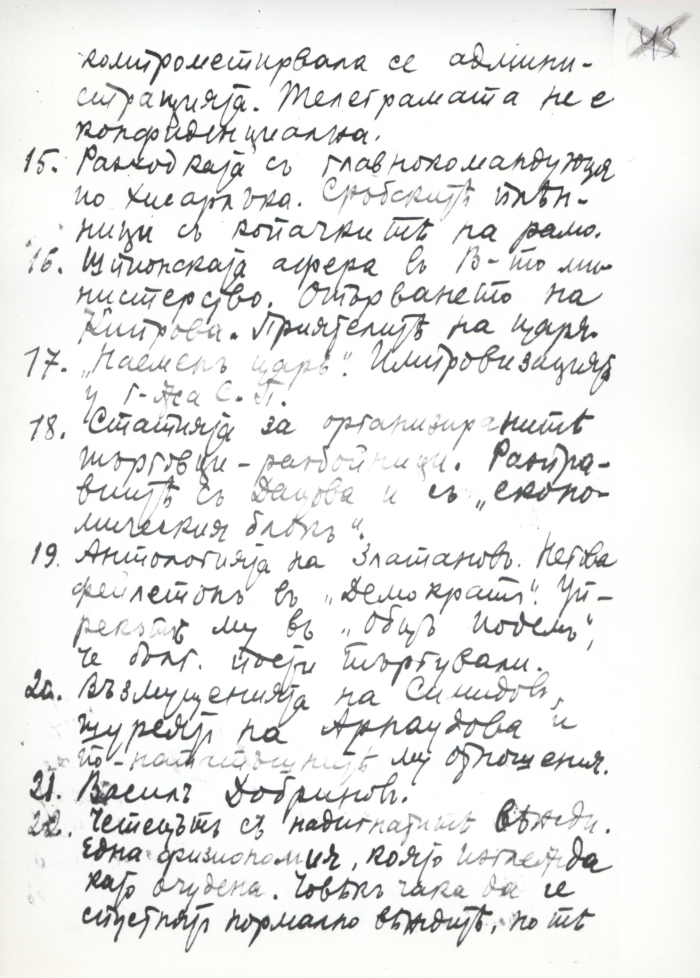 43
компрометирвала се админи-
страцията. Телеграмата не е
конфиденциална.
15. Разходката съ главнокомандующия
по Хисарлъка. Сръбскитѣ плѣн-
ници съ копачкитѣ на рамо.
16. Шпионската афера въ В-то ми-
нистерство. Отърването на
Китрова. Приятелитѣ на царя.
17. „Наеменъ царь“. Импровизацията
у г-жа С. П.
18. Статията за организиранитѣ
търговци-разбойници. Разпра-
виитѣ съ Дацова и съ „еконо-
мическия блокъ“.
19. Антологията на Златановъ. Негова
фейлетонъ въ „Демократъ“. Уп-
рекътъ му въ „Общъ подемъ“,
че бълг. поети търгували.
20. Възмущенията на Симидовъ,
на Арнаудова и
по-нататъшнитѣ му отношения.
21. Василъ Добриновъ.
22. Четецътъ съ надигнатитѣ вѣжди.
Една физиономия, която изглежда
като очудена. Човѣкъ чака да се
спустнатъ нормално вѣждитѣ, но тѣ